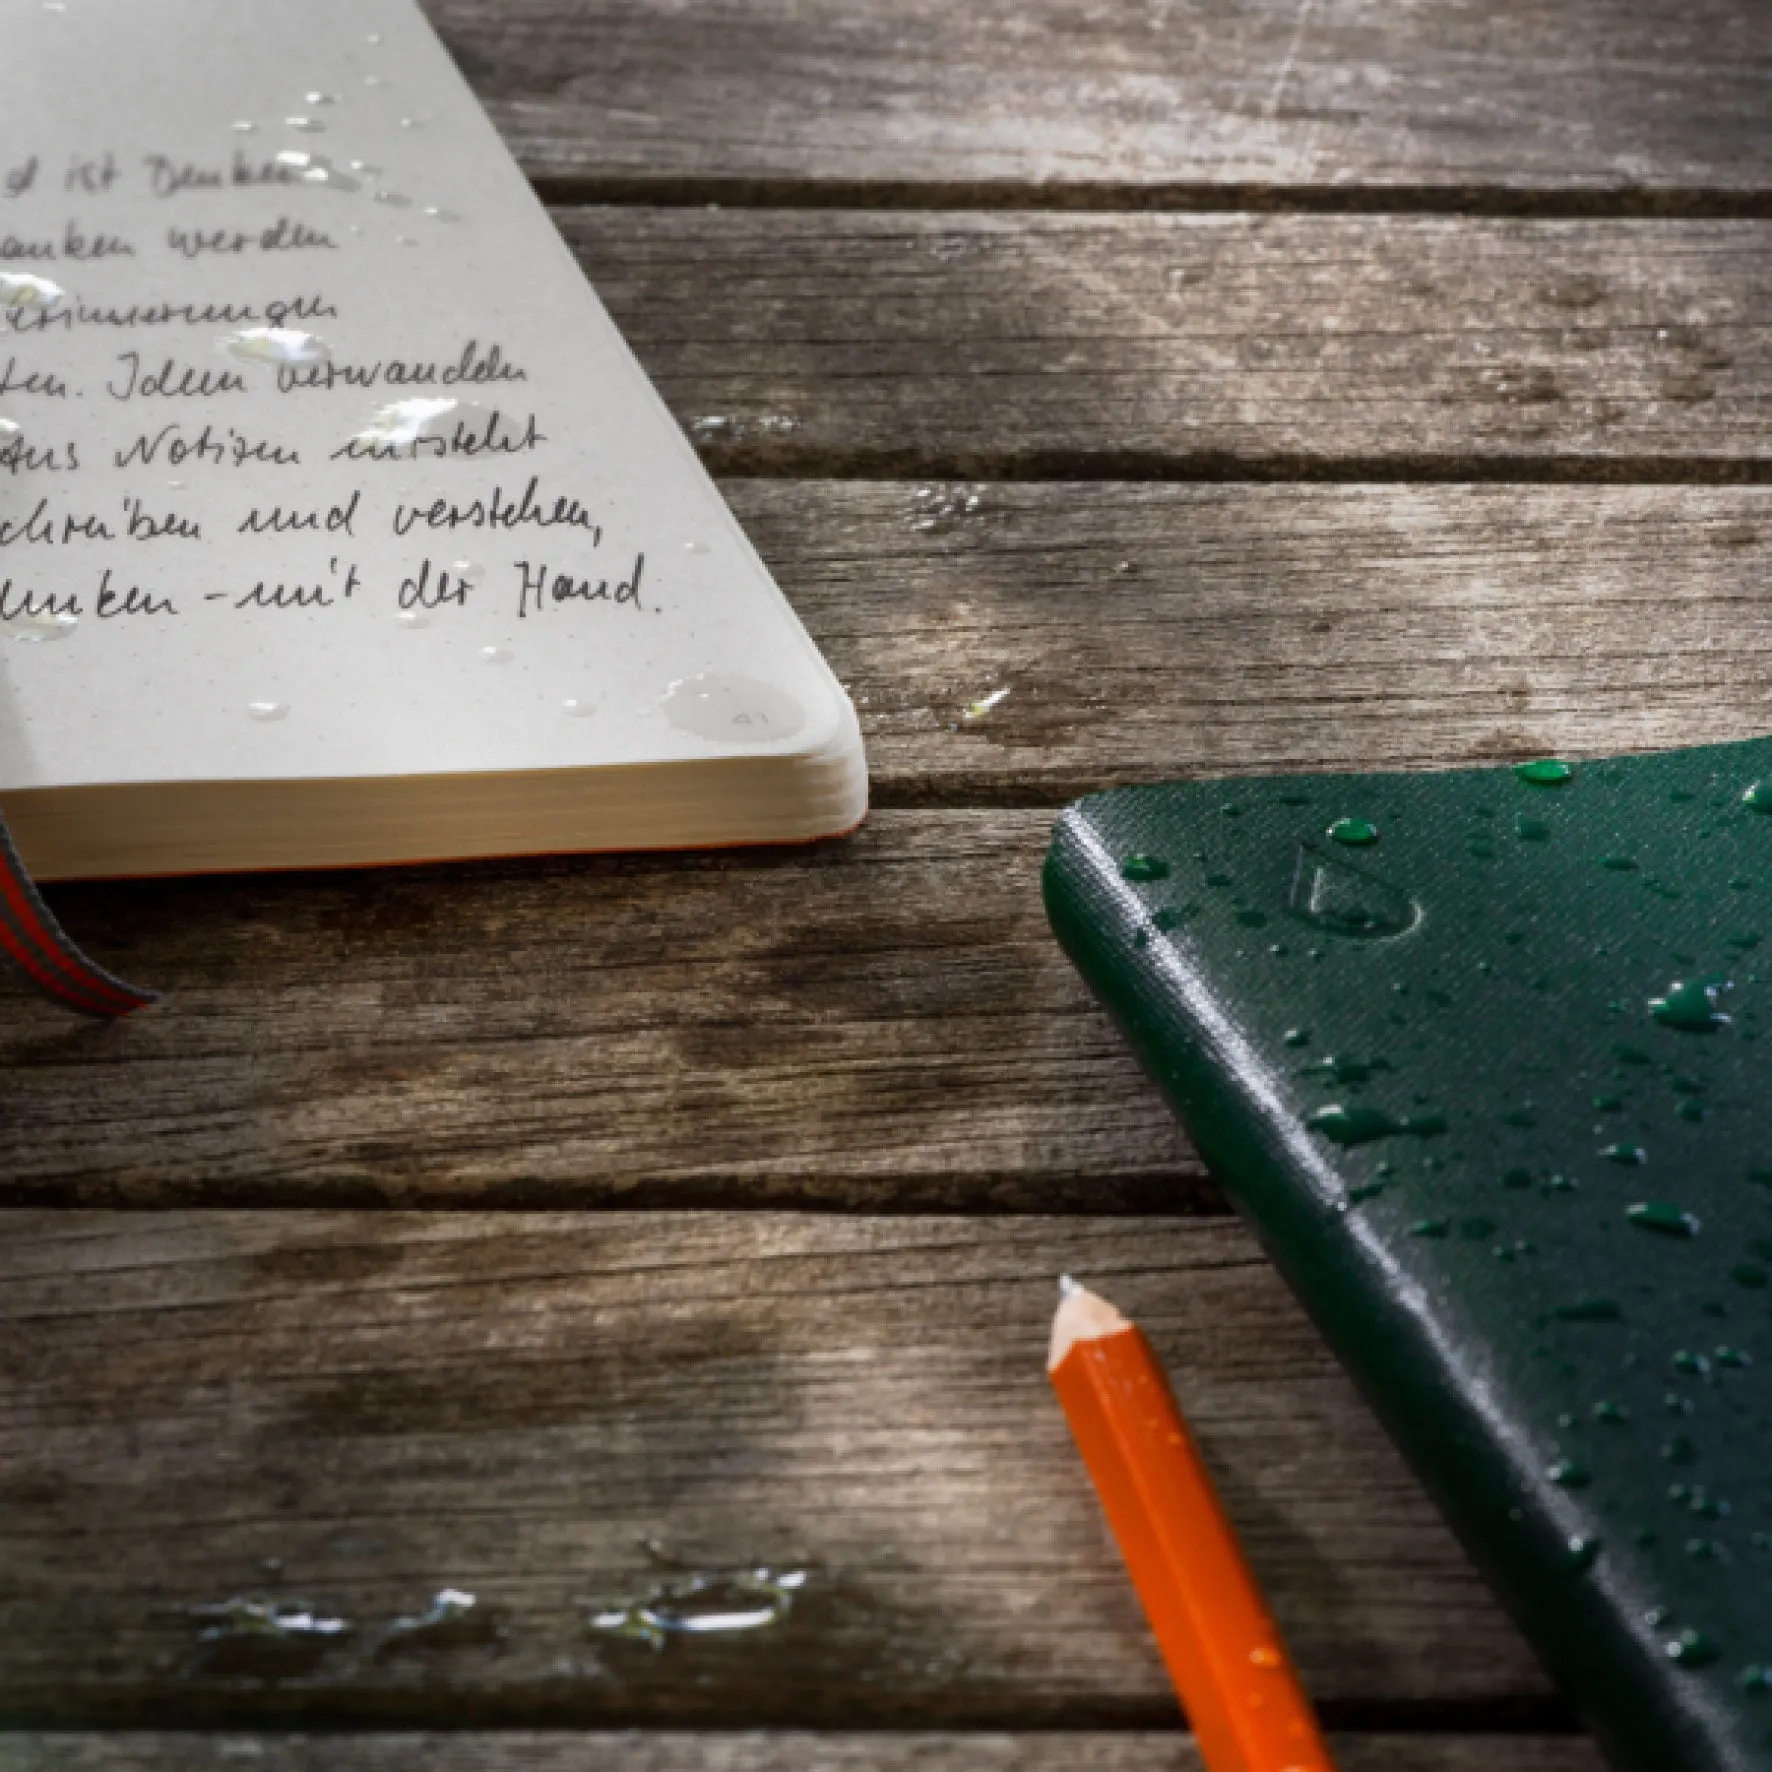 ist Denken
werden
erinnerungen
ten. Ideen verwandeln
Aus Notizen entsteht
chreiben und verstehen,
denken - mit der Hand.
41